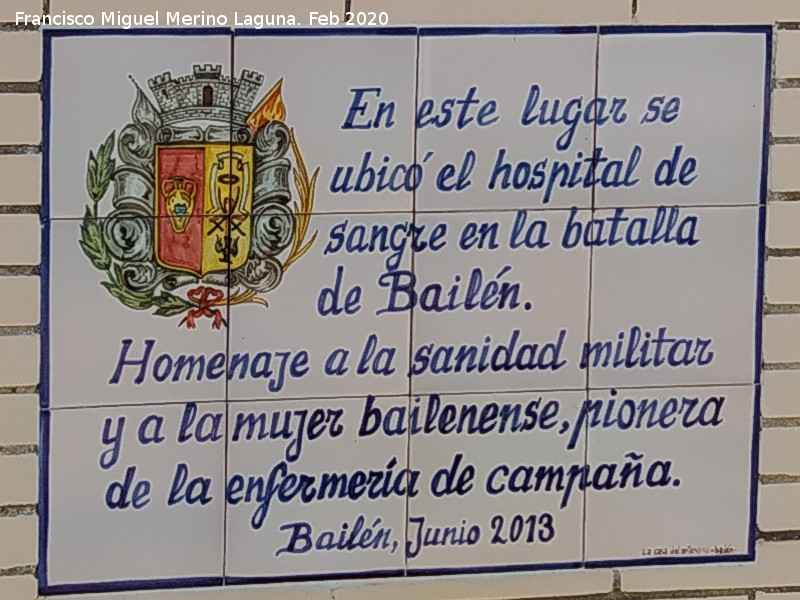 Francisco Miguel Merino Laguna. Feb 2020
En este lugar se
ubicó el hospital de
sangre en la batalla
de Bailén.
Homenaje a la sanidad militar
y a la mujer bailenense, pionera
de la enfermería de campaña.
Bailén, Junio 2013
La casa del artesano - bailén -